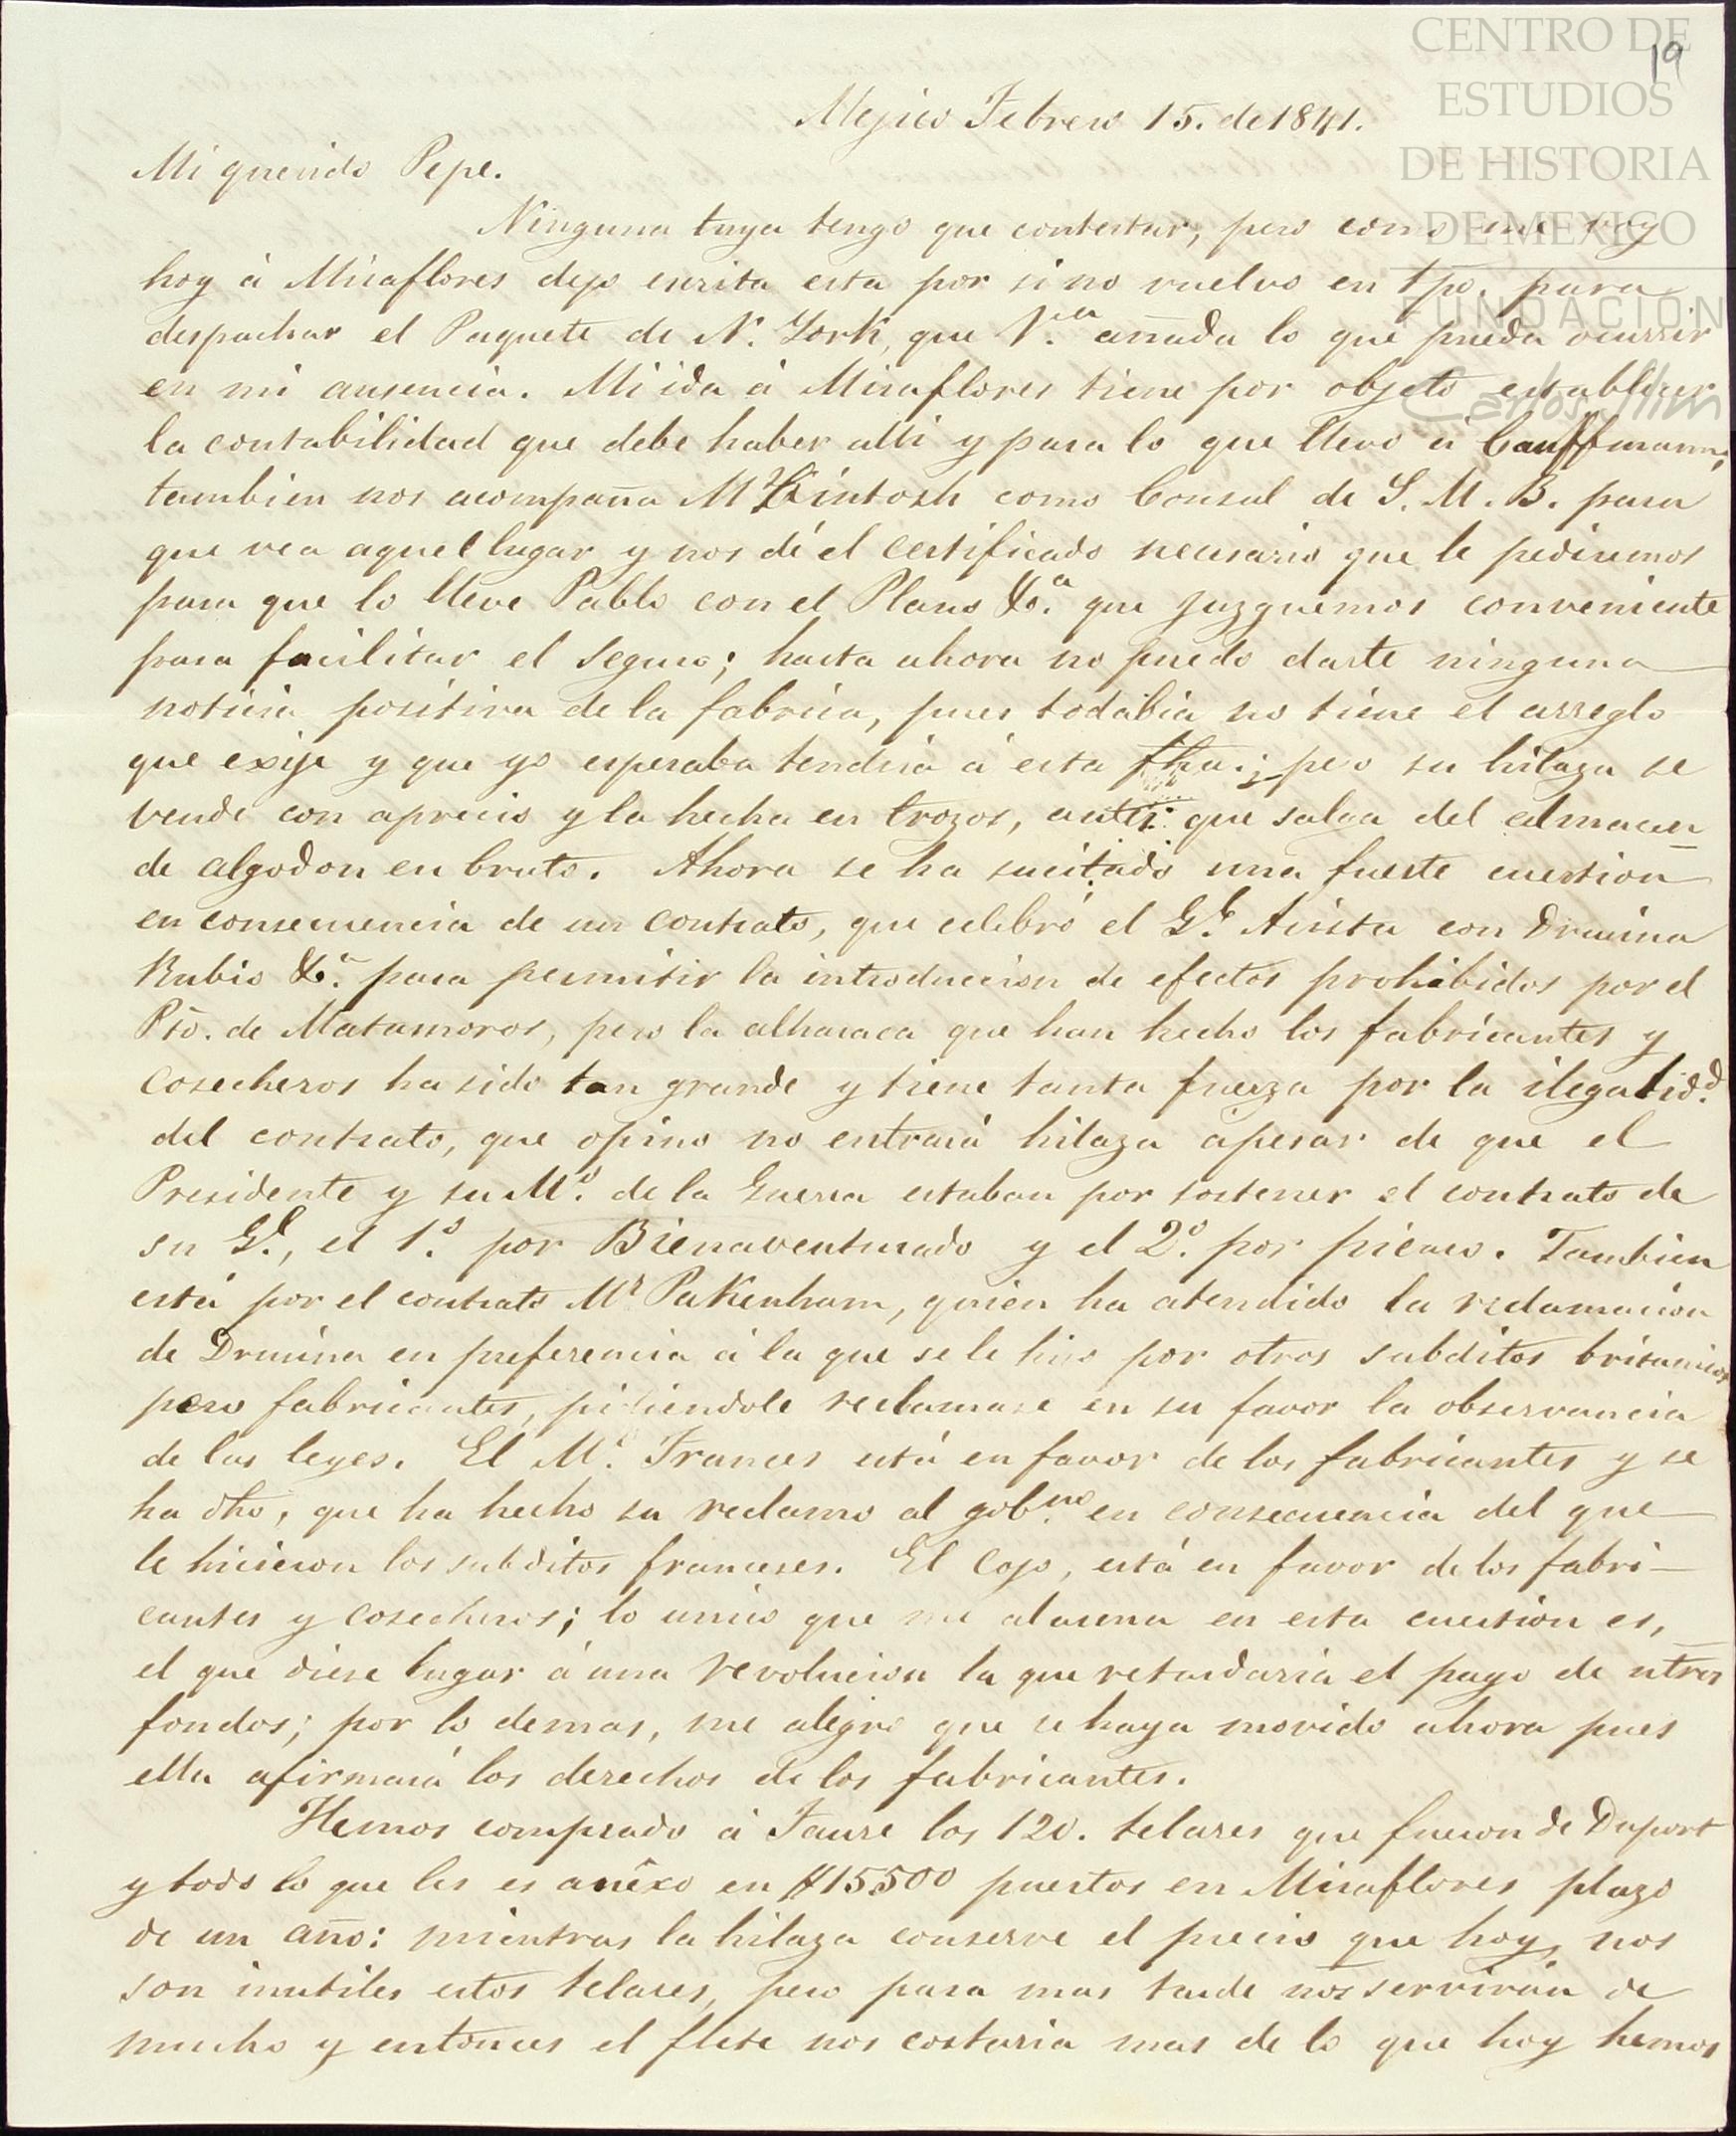 CENTRO DE
ESTUDIOS
DE HISTORIA
DE MEXICO
FUNDACIÓN
Carlos Slim
19
Mejico Febrero 15. de 1841.
Mi querido Pepe.
Ninguna tuya tengo que contestar, pero como me voy
hoy á Miraflores dejo escrita esta por si no vuelvo en tpo. para
despachar el Paquete de N. York, que V.ª añada lo que pueda ocurrir
en mi ausencia. Mi ida á Miraflores tiene por objeto establecer
la contabilidad que debe haber alli y para lo que llevo á Cauffmann,
tambien nos acompaña McKintosh como Consul de S. M. B. para
que vea aquel lugar y nos dé el certificado necesario que le pediremos
para que lo lleve Pablo con el Plano &.ª que juzguemos conveniente
para facilitar el seguro; hasta ahora no puedo darte ninguna
noticia positiva de la fabrica, pues todabia no tiene el arreglo
que exije y que yo esperaba tendria á esta fha.; pero su hilaza se
vende con aprecio y la hecha en trozos, antes que salga del almacen
de algodon en bruto. Ahora se ha sucitado una fuerte cuestion
en consecuencia de un contrato, que celebró el G.l Arista con Drucina
Rubio &.ª para permitir la introduccion de efectos prohibidos por el
Pto. de Matamoros, pero la alharaca que han hecho los fabricantes y
cosecheros ha sido tan grande y tiene tanta fuerza por la ilegalidd.
del contrato, que opino no entrará hilaza apesar de que el
Presidente y su M.º de la Guerra estaban por sostener el contrato de
su G.l, el 1.º por Bienaventurado y el 2.º por picaro. Tambien
está por el contrato Mr Pakenham, quien ha atendido la reclamacion
de Drucina en preferencia á la que se le hiso por otros subditos britanicos
pero fabricantes, pidiendole reclamase en su favor la observancia
de las leyes. El M.º Frances está en favor de los fabricantes y se
ha dho, que ha hecho su reclamo al gob.no en consecuencia del que
le hicieron los subditos franceses. El Cojo, está en favor de los fabri-
cantes y cosecheros; lo unico que me alarma en esta cuestion es,
el que diese lugar á una revolucion la que retardaria el pago de ntros
fondos; por lo demas, me alegro que se haya movido ahora pues
ella afirmará los derechos de los fabricantes.
Hemos comprado á Faure los 120. telares que fueron de Duport
y todo lo que les es anêxo en $15500 puestos en Miraflores plazo
de un año: mientras la hilaza conserve el precio que hoy, nos
son inutiles estos telares, pero para mas tarde nos servirán de
mucho y entonces el flete nos costaria mas de lo que hoy hemos